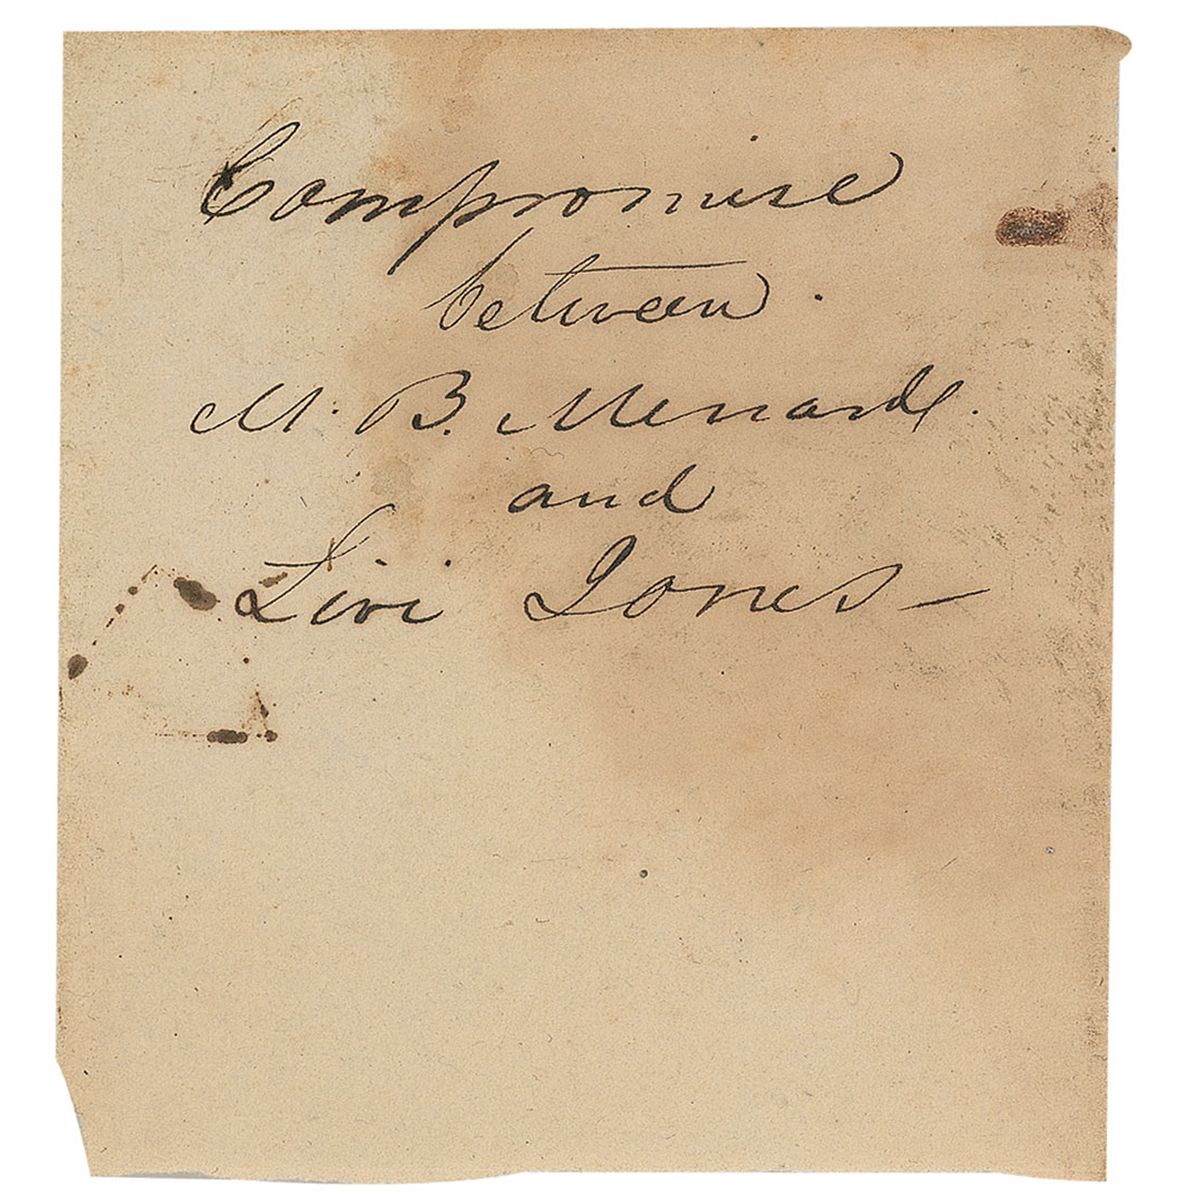 Compromise
between.
M. B. Menard.
and
Livi Jones —